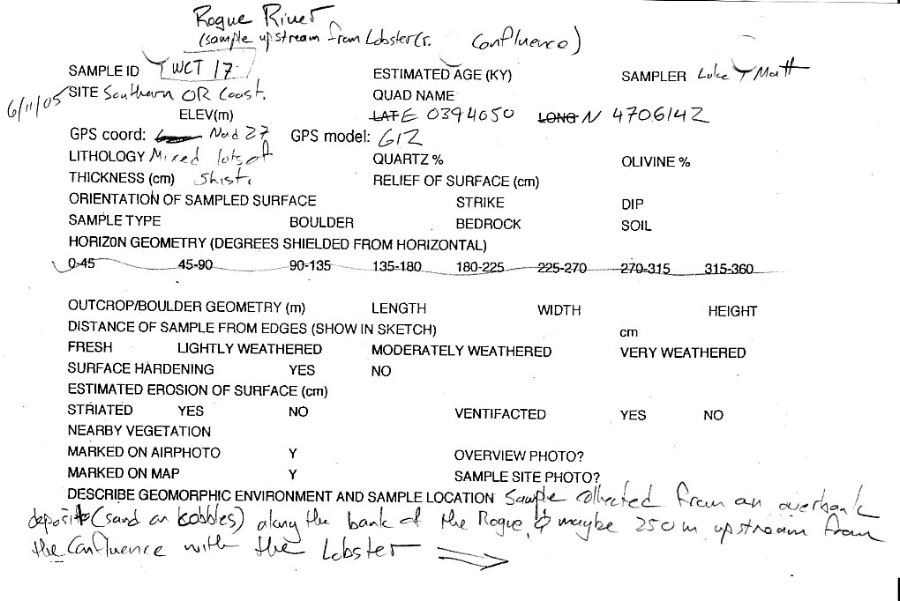 Rogue River
(sample upstream from Lobster Cr. Confluence)
SAMPLE ID WCT 17 ESTIMATED AGE (KY) SAMPLER Luke + Matt
6/11/05 SITE Southern OR Coast. QUAD NAME
ELEV(m) LAT E 0394050 LONG N 4706142
GPS coord: Nad 27 GPS model: G12
LITHOLOGY Mixed lots of QUARTZ % OLIVINE %
THICKNESS (cm) Shist. RELIEF OF SURFACE (cm)
ORIENTATION OF SAMPLED SURFACE STRIKE DIP
SAMPLE TYPE BOULDER BEDROCK SOIL
HORIZON GEOMETRY (DEGREES SHIELDED FROM HORIZONTAL)
0-45 45-90 90-135 135-180 180-225 225-270 270-315 315-360
OUTCROP/BOULDER GEOMETRY (m) LENGTH WIDTH HEIGHT
DISTANCE OF SAMPLE FROM EDGES (SHOW IN SKETCH) cm
FRESH LIGHTLY WEATHERED MODERATELY WEATHERED VERY WEATHERED
SURFACE HARDENING YES NO
ESTIMATED EROSION OF SURFACE (cm)
STRIATED YES NO VENTIFACTED YES NO
NEARBY VEGETATION
MARKED ON AIRPHOTO Y OVERVIEW PHOTO?
MARKED ON MAP Y SAMPLE SITE PHOTO?
DESCRIBE GEOMORPHIC ENVIRONMENT AND SAMPLE LOCATION Sample collected from an overbank
deposit (sand on cobbles) along the bank of the Rogue, maybe 250 m upstream from
the Confluence with the Lobster